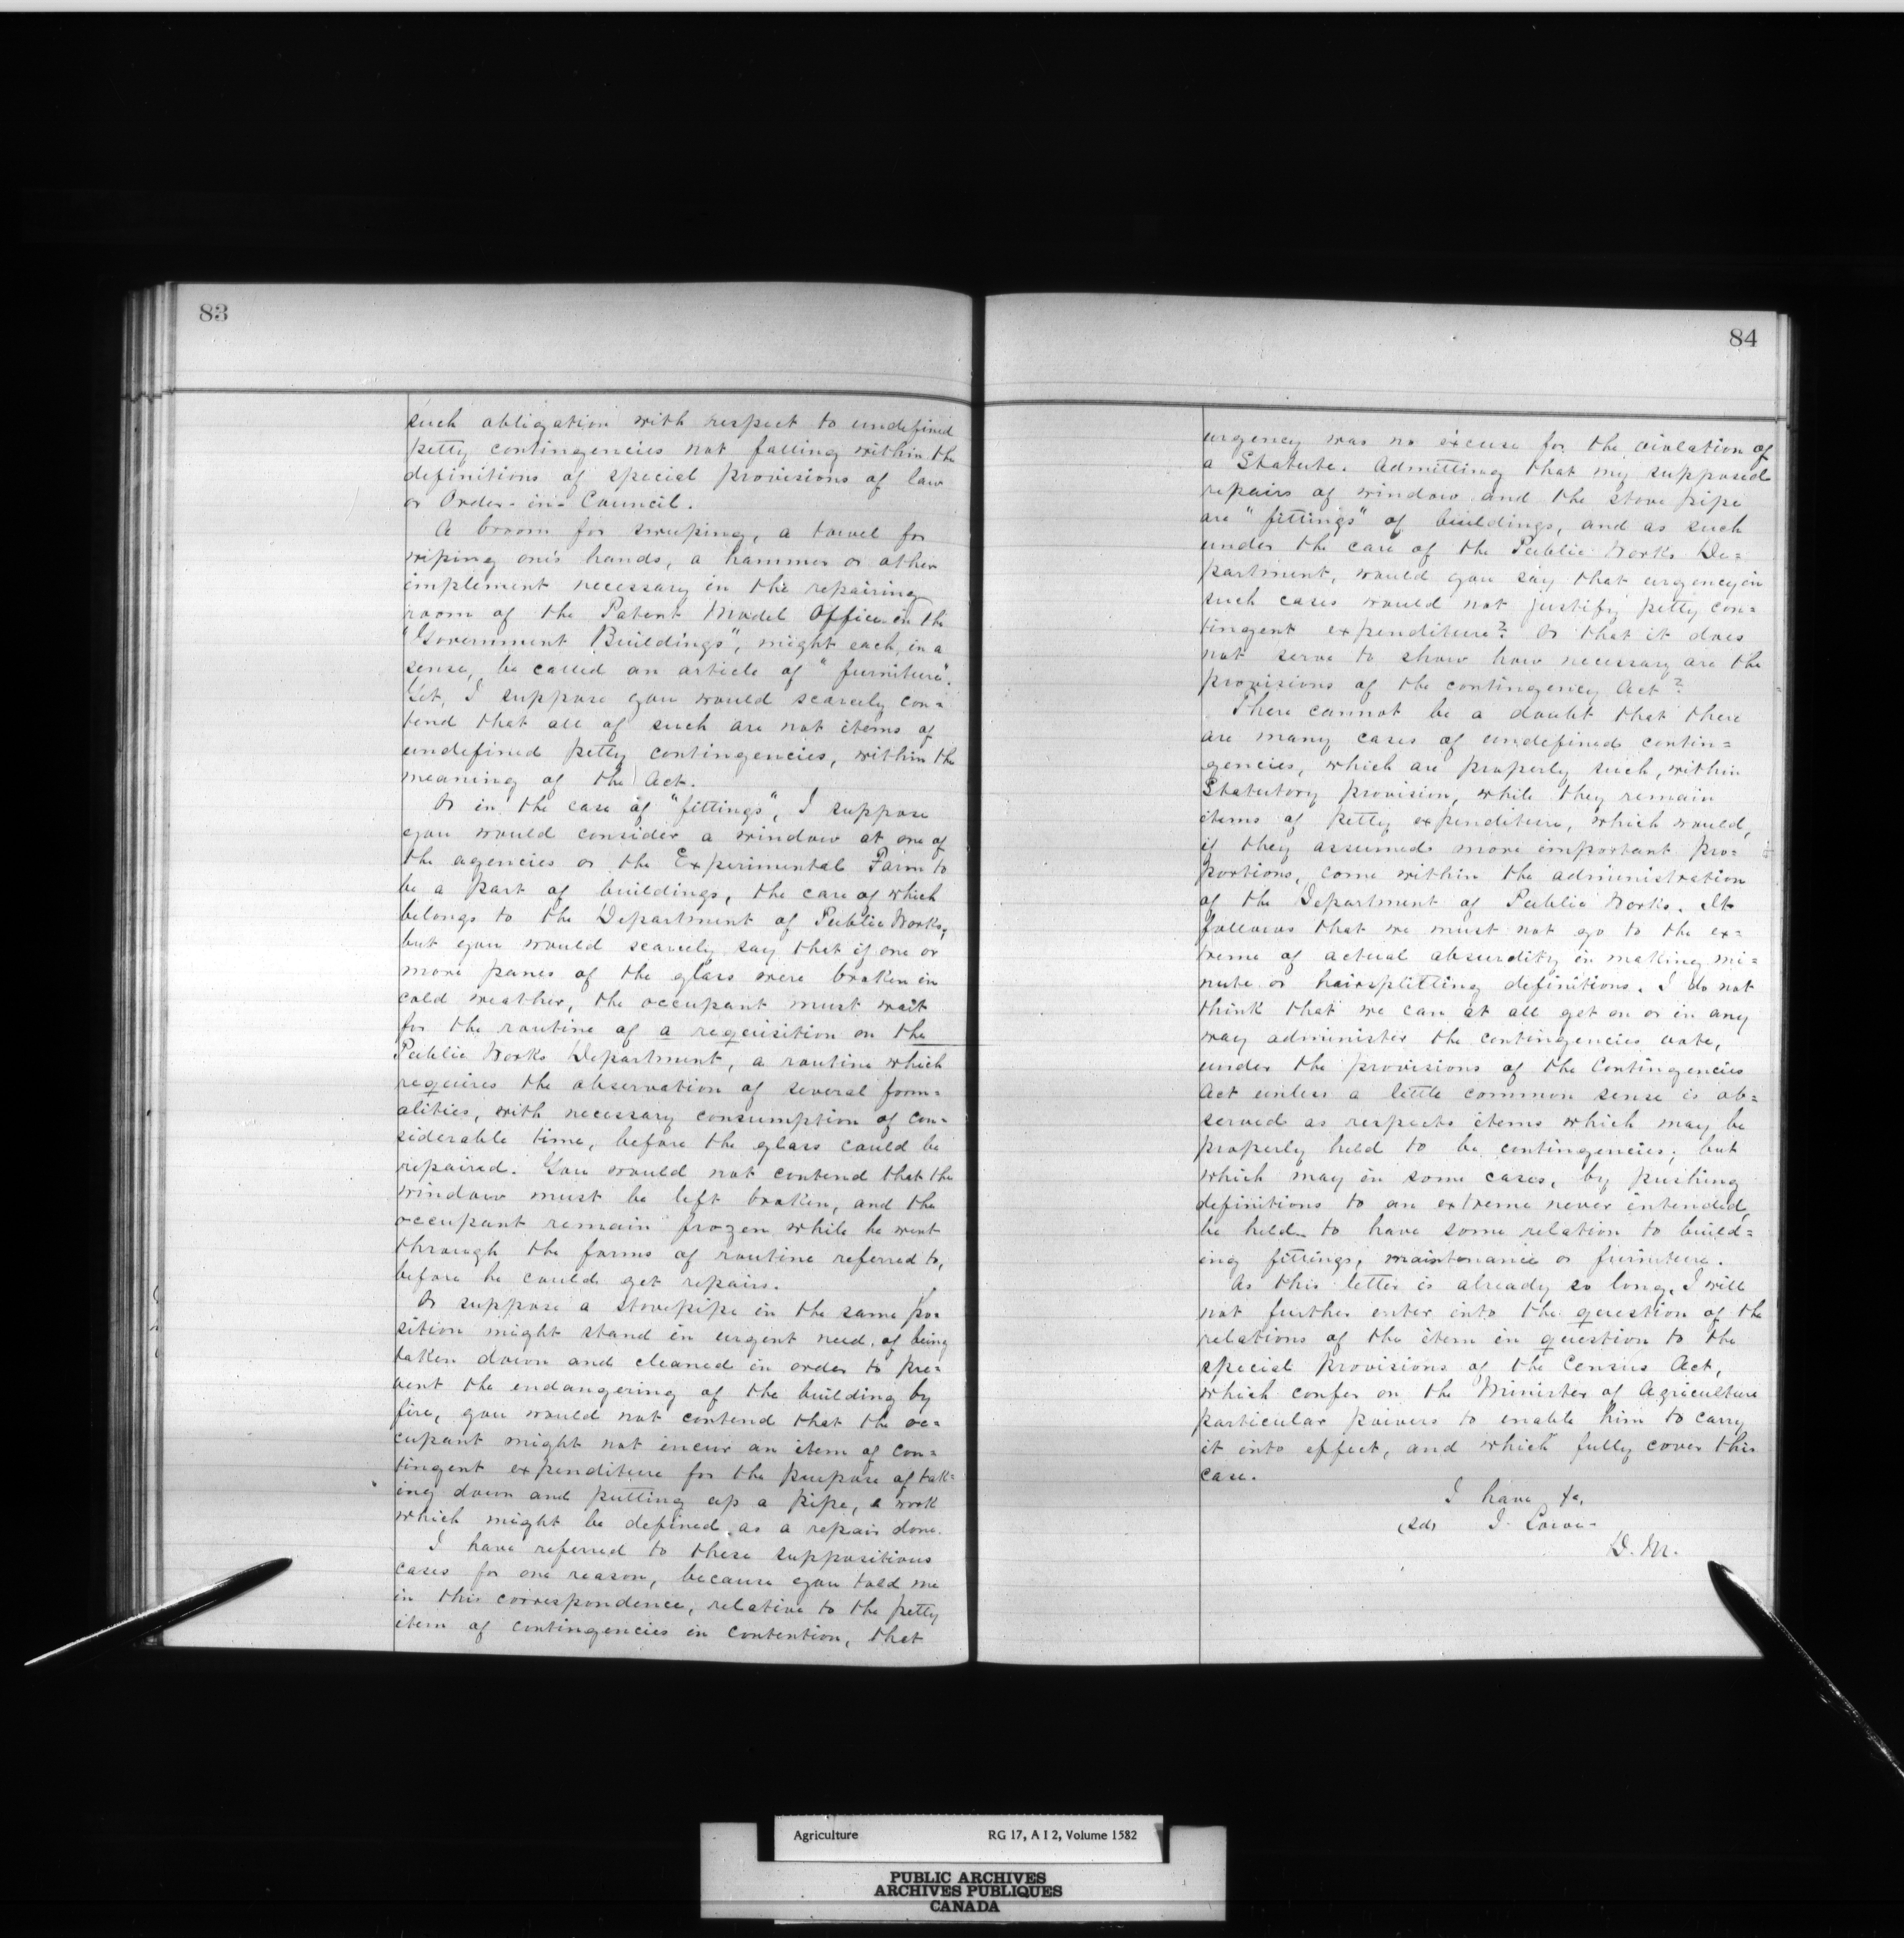 83
such obligation with respect to undefined
petty contingencies not falling within the
definitions of special provisions of law
or Order-in-Council.
A broom for sweeping, a towel for
wiping one's hands, a hammer or other
implement necessary in the repairing
room of the Patent Model Office in the
"Government Buildings", might each, in a
sense, be called an article of "furniture".
Yet, I suppose you would scarcely con=
tend that all of such are not items of
undefined petty contingencies, within the
meaning of the Act.
Or in the case of "fittings", I suppose
you would consider a window at one of
the agencies or the Experimental Farm to
be a part of buildings, the care of which
belongs to the Department of Public Works,
but you would scarcely say that if one or
more panes of the glass were broken in
cold weather, the occupant must wait
for the routine of a requisition on the
Public Works Department, a routine which
requires the observation of several form=
alities, with necessary consumption of con=
siderable time, before the glass could be
repaired. You would not contend that the
window must be left broken, and the
occupant remain frozen while he went
through the forms of routine referred to,
before he could get repairs.
Or suppose a stovepipe in the same po=
sition might stand in urgent need of being
taken down and cleaned in order to pre=
vent the endangering of the building by
fire, you would not contend that the oc=
cupant might not incur an item of con=
tingent expenditure for the purpose of tak=
ing down and putting up a pipe, a work
which might be defined as a repair done.
I have referred to these suppositious
cases for one reason, because you told me
in this correspondence, relative to the petty
item of contingencies in contention, that
84
urgency was no excuse for the violation of
a Statute. Admitting that my supposed
repairs of window and the stove pipe
are "fittings" of buildings, and as such
under the care of the Public Works De=
partment, would you say that urgency in
such cases would not justify petty con=
tingent expenditure? Or that it does
not serve to show how necessary are the
provisions of the contingency Act?
There cannot be a doubt that there
are many cases of undefined contin=
gencies, which are properly such, within
Statutory provision, while they remain
items of petty expenditure, which would,
if they assumed more important pro=
portions, come within the administration
of the Department of Public Works. It
follows that we must not go to the ex=
treme of actual absurdity in making mi=
nute or hairsplitting definitions. I do not
think that we can at all get on or in any
way administer the contingencies vote,
under the provisions of the Contingencies
Act unless a little common sense is ob=
served as respects items which may be
properly held to be contingencies; but
which may in some cases, by pushing
definitions to an extreme never intended,
be held to have some relation to build=
ing fittings, maintenance or furniture.
As this letter is already so long, I will
not further enter into the question of the
relations of the item in question to the
special provisions of the Census Act,
which confer on the Minister of Agriculture
particular powers to enable him to carry
it into effect, and which fully cover this
case.
I have &c,
(sd) J. Lowe
D. M.
Agriculture RG 17, A I 2, Volume 1582
PUBLIC ARCHIVES
ARCHIVES PUBLIQUES
CANADA